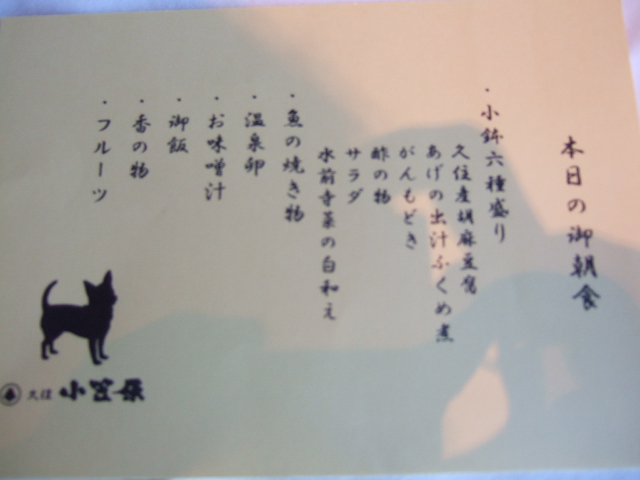 本日の御朝食
・小鉢六種盛り
久住産胡麻豆腐
あげの出汁ふくめ煮
がんもどき
酢の物
サラダ
水前寺菜の白和え
・魚の焼き物
・温泉卵
・お味噌汁
・御飯
・香の物
・フルーツ
久住 小笠原